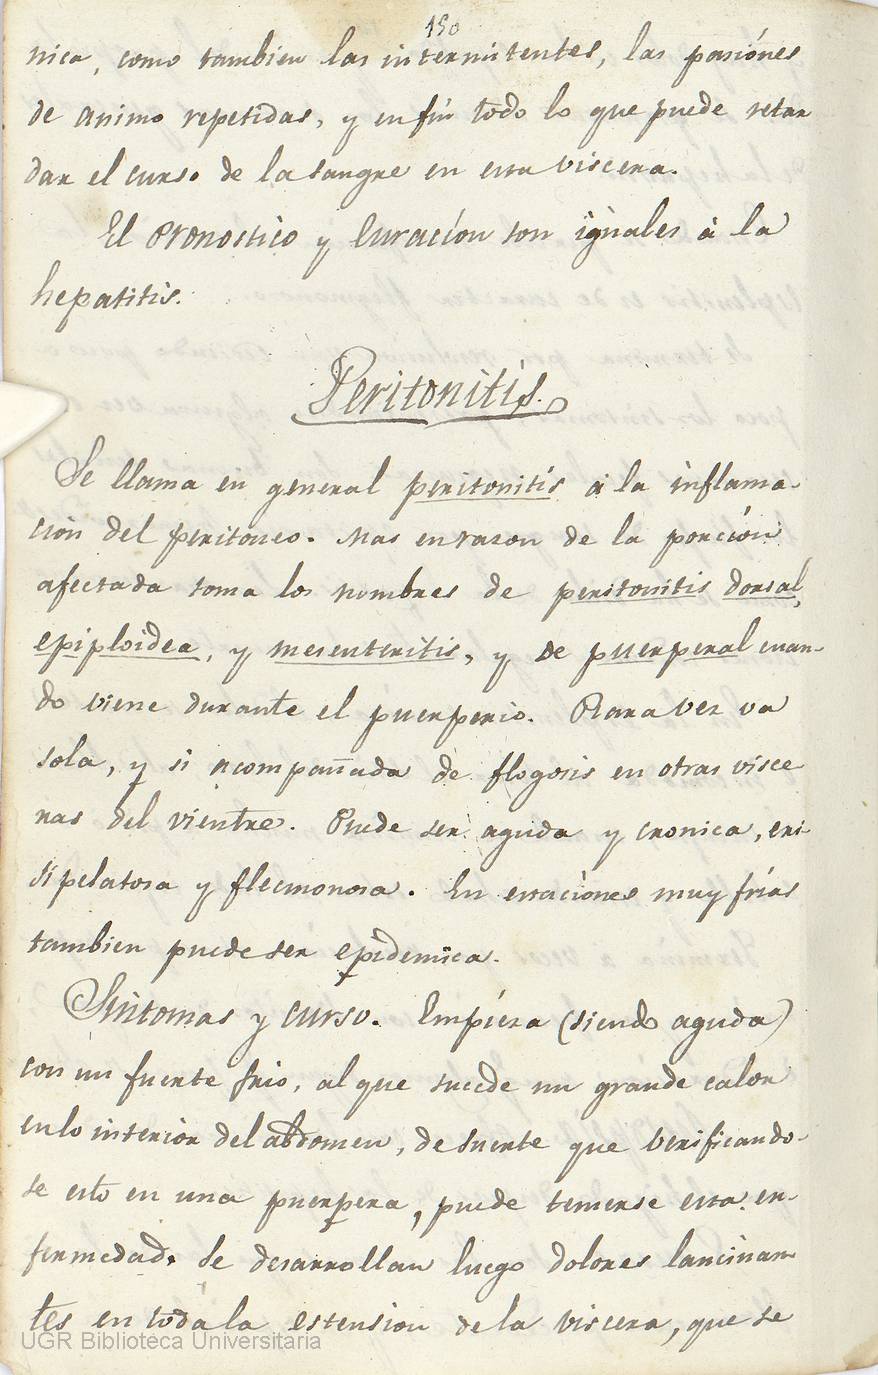 150
nica, como tambien las intermitentes, las pasiónes
de animo repetidas, y en fin todo lo que puede retar
dar el curso de la sangre en esta viscera.
El pronostico y curación son iguales à la
hepatitis.
Peritonitis.
Se llama en general peritonitis à la inflama-
cion del peritoneo. Mas en razon de la porción
afectada toma los nombres de peritonitis dorsal,
epiploidea, y mesenteritis, y de puerperal cuan-
do viene durante el puerperio. Rara vez va
sola, y si acompañada de flogosis en otras visce
ras del vientre. Puede ser aguda y cronica, eri-
sipelatosa y flecmonosa. En estaciones muy frías
tambien puede ser epidemica.
Sintomas y curso. Empieza (siendo aguda)
con un fuerte frio, al que sucede un grande calor
en lo interior del abdomen, de suerte que verificando-
se esto en una puerpera, puede temerse esta en-
fermedad. Se desarrollan luego dolores lancinan-
tes en toda la estension de la viscera, que se
UGR Biblioteca Universitaria